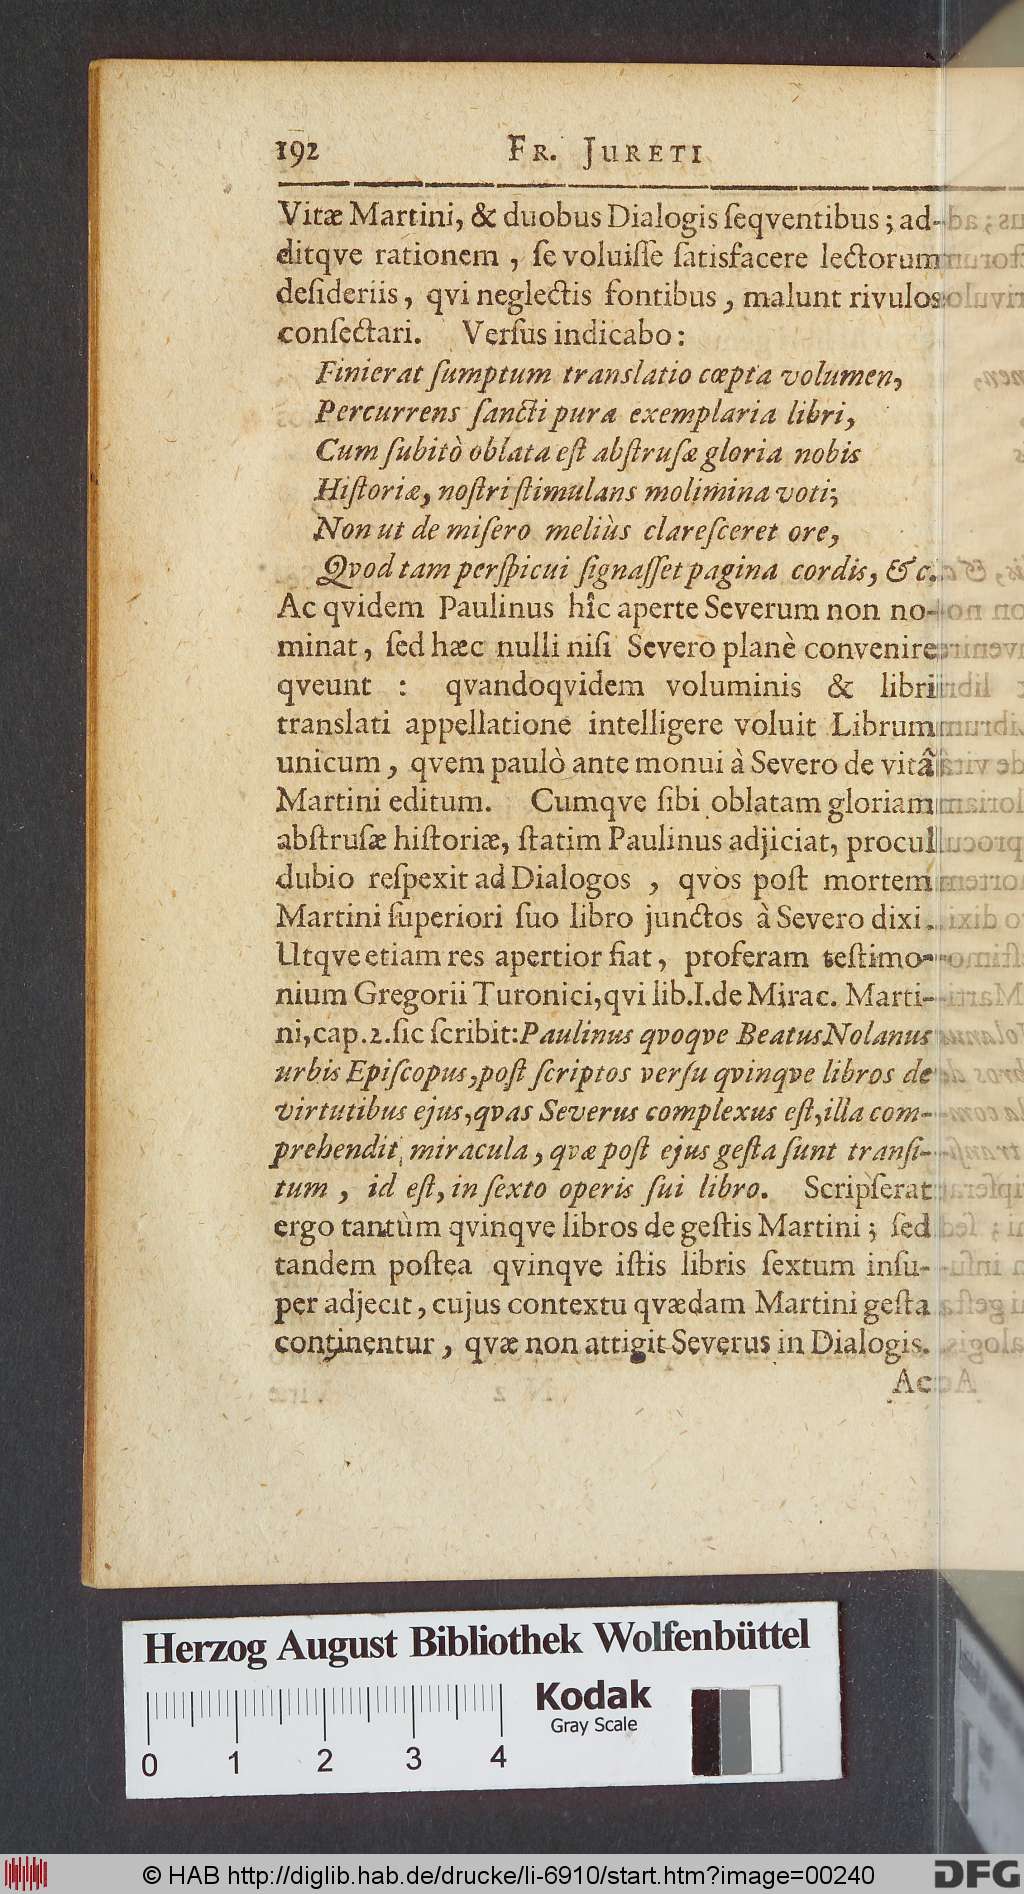 192 FR. JURETI
Vitæ Martini, & duobus Dialogis ſeqventibus; ad-
ditqve rationem, ſe voluiſſe ſatisfacere lectorum
deſideriis, qvi neglectis fontibus, malunt rivulos
conſectari. Verſus indicabo:
Finierat ſumptum translatio cœpta volumen,
Percurrens ſancti pura exemplaria libri,
Cum ſubitò oblata eſt abſtruſæ gloria nobis
Hiſtoriæ, noſtri ſtimulans molimina voti;
Non ut de miſero meliùs clareſceret ore,
Qvod tam perſpicui ſignaſſet pagina cordis, &c.
Ac qvidem Paulinus hîc aperte Severum non no-
minat, ſed hæc nulli niſi Severo planè convenire
qveunt : qvandoqvidem voluminis & libri
translati appellatione intelligere voluit Librum
unicum, qvem paulò ante monui à Severo de vitâ
Martini editum. Cumqve ſibi oblatam gloriam
abſtruſæ hiſtoriæ, ſtatim Paulinus adjiciat, procul
dubio reſpexit ad Dialogos , qvos poſt mortem
Martini ſuperiori ſuo libro junctos à Severo dixi.
Utqve etiam res apertior fiat, proferam teſtimo-
nium Gregorii Turonici, qvi lib.I.de Mirac. Marti-
ni, cap.2. ſic ſcribit: Paulinus qvoqve Beatus Nolanus
urbis Epiſcopus, poſt ſcriptos verſu qvinqve libros de
virtutibus ejus, qvas Severus complexus eſt, illa com-
prehendit miracula, qvæ poſt ejus geſta ſunt tranſi-
tum , id eſt, in ſexto operis ſui libro. Scripſerat
ergo tantùm qvinqve libros de geſtis Martini; ſed
tandem poſtea qvinqve iſtis libris ſextum inſu-
per adjecit, cujus contextu qvædam Martini geſta
continentur, qvæ non attigit Severus in Dialogis.
Ac
Herzog August Bibliothek Wolfenbüttel
Kodak
Gray Scale
0 1 2 3 4
© HAB http://diglib.hab.de/drucke/li-6910/start.htm?image=00240
DFG